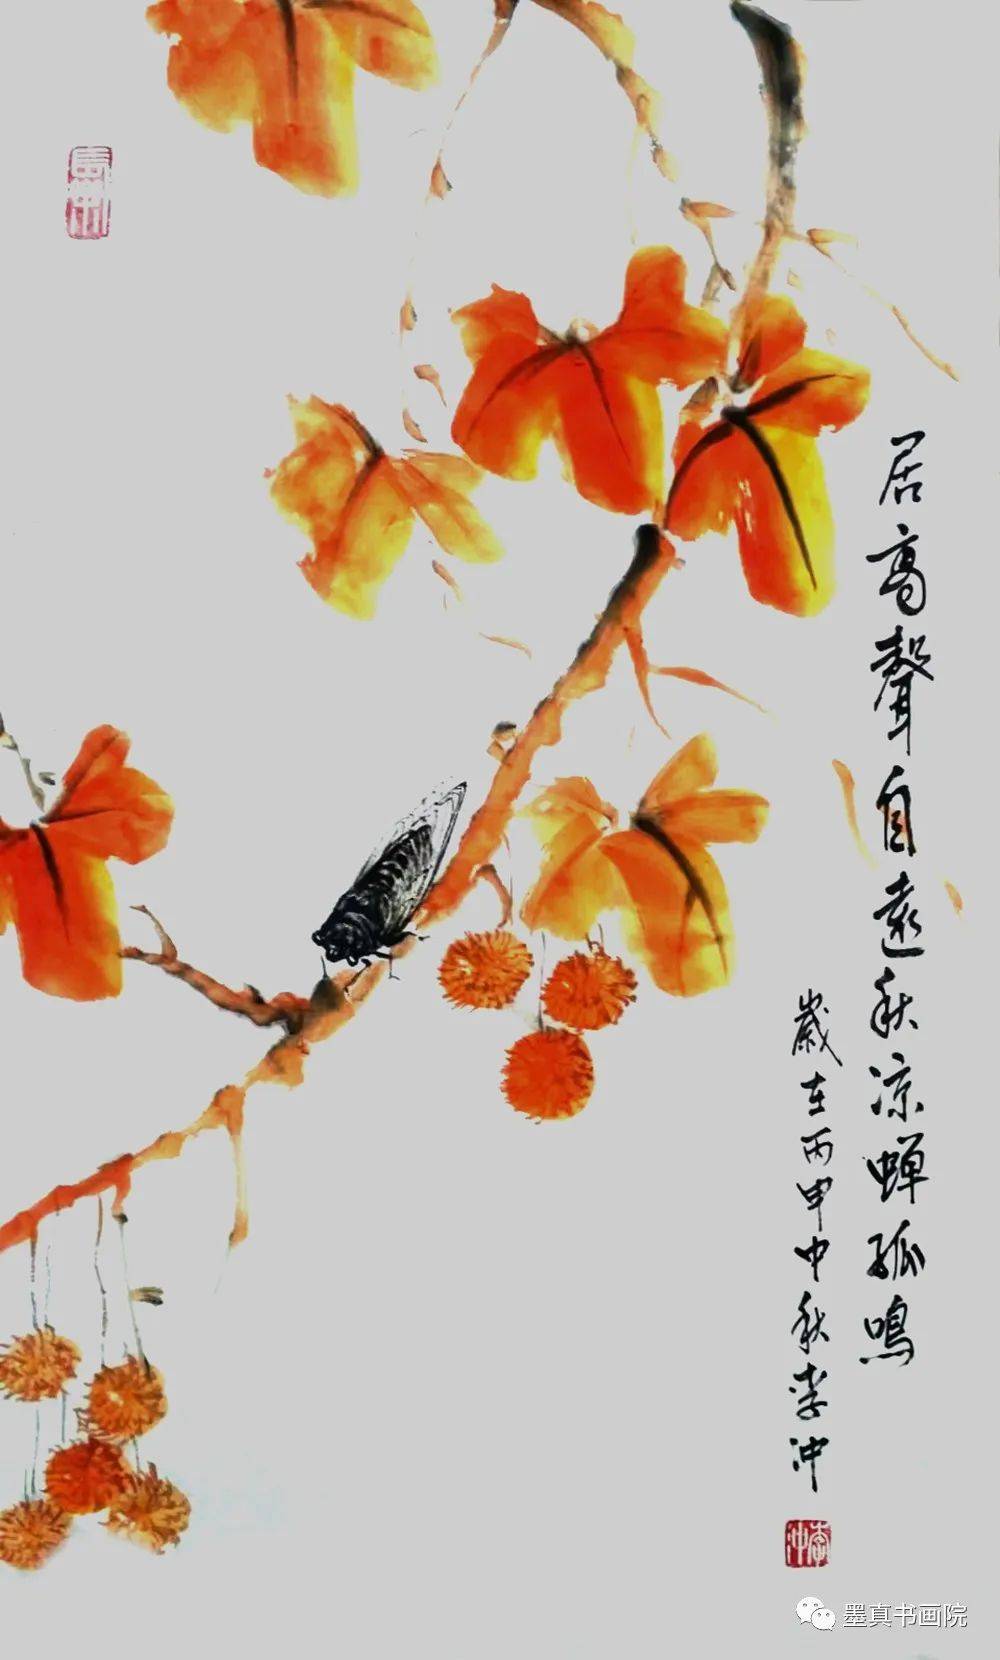 居高聲自遠秋凉蝉孤鳴
歲在丙申中秋李冲
李冲
墨真书画院